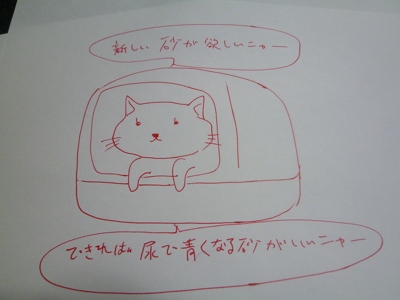 新しい砂が欲しいニャー
できれば尿で青くなる砂がいいニャー